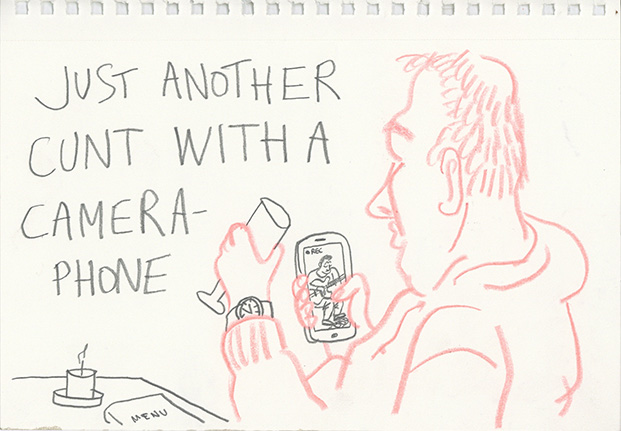 JUST ANOTHER
CUNT WITH A
CAMERA-
PHONE
REC
MENU